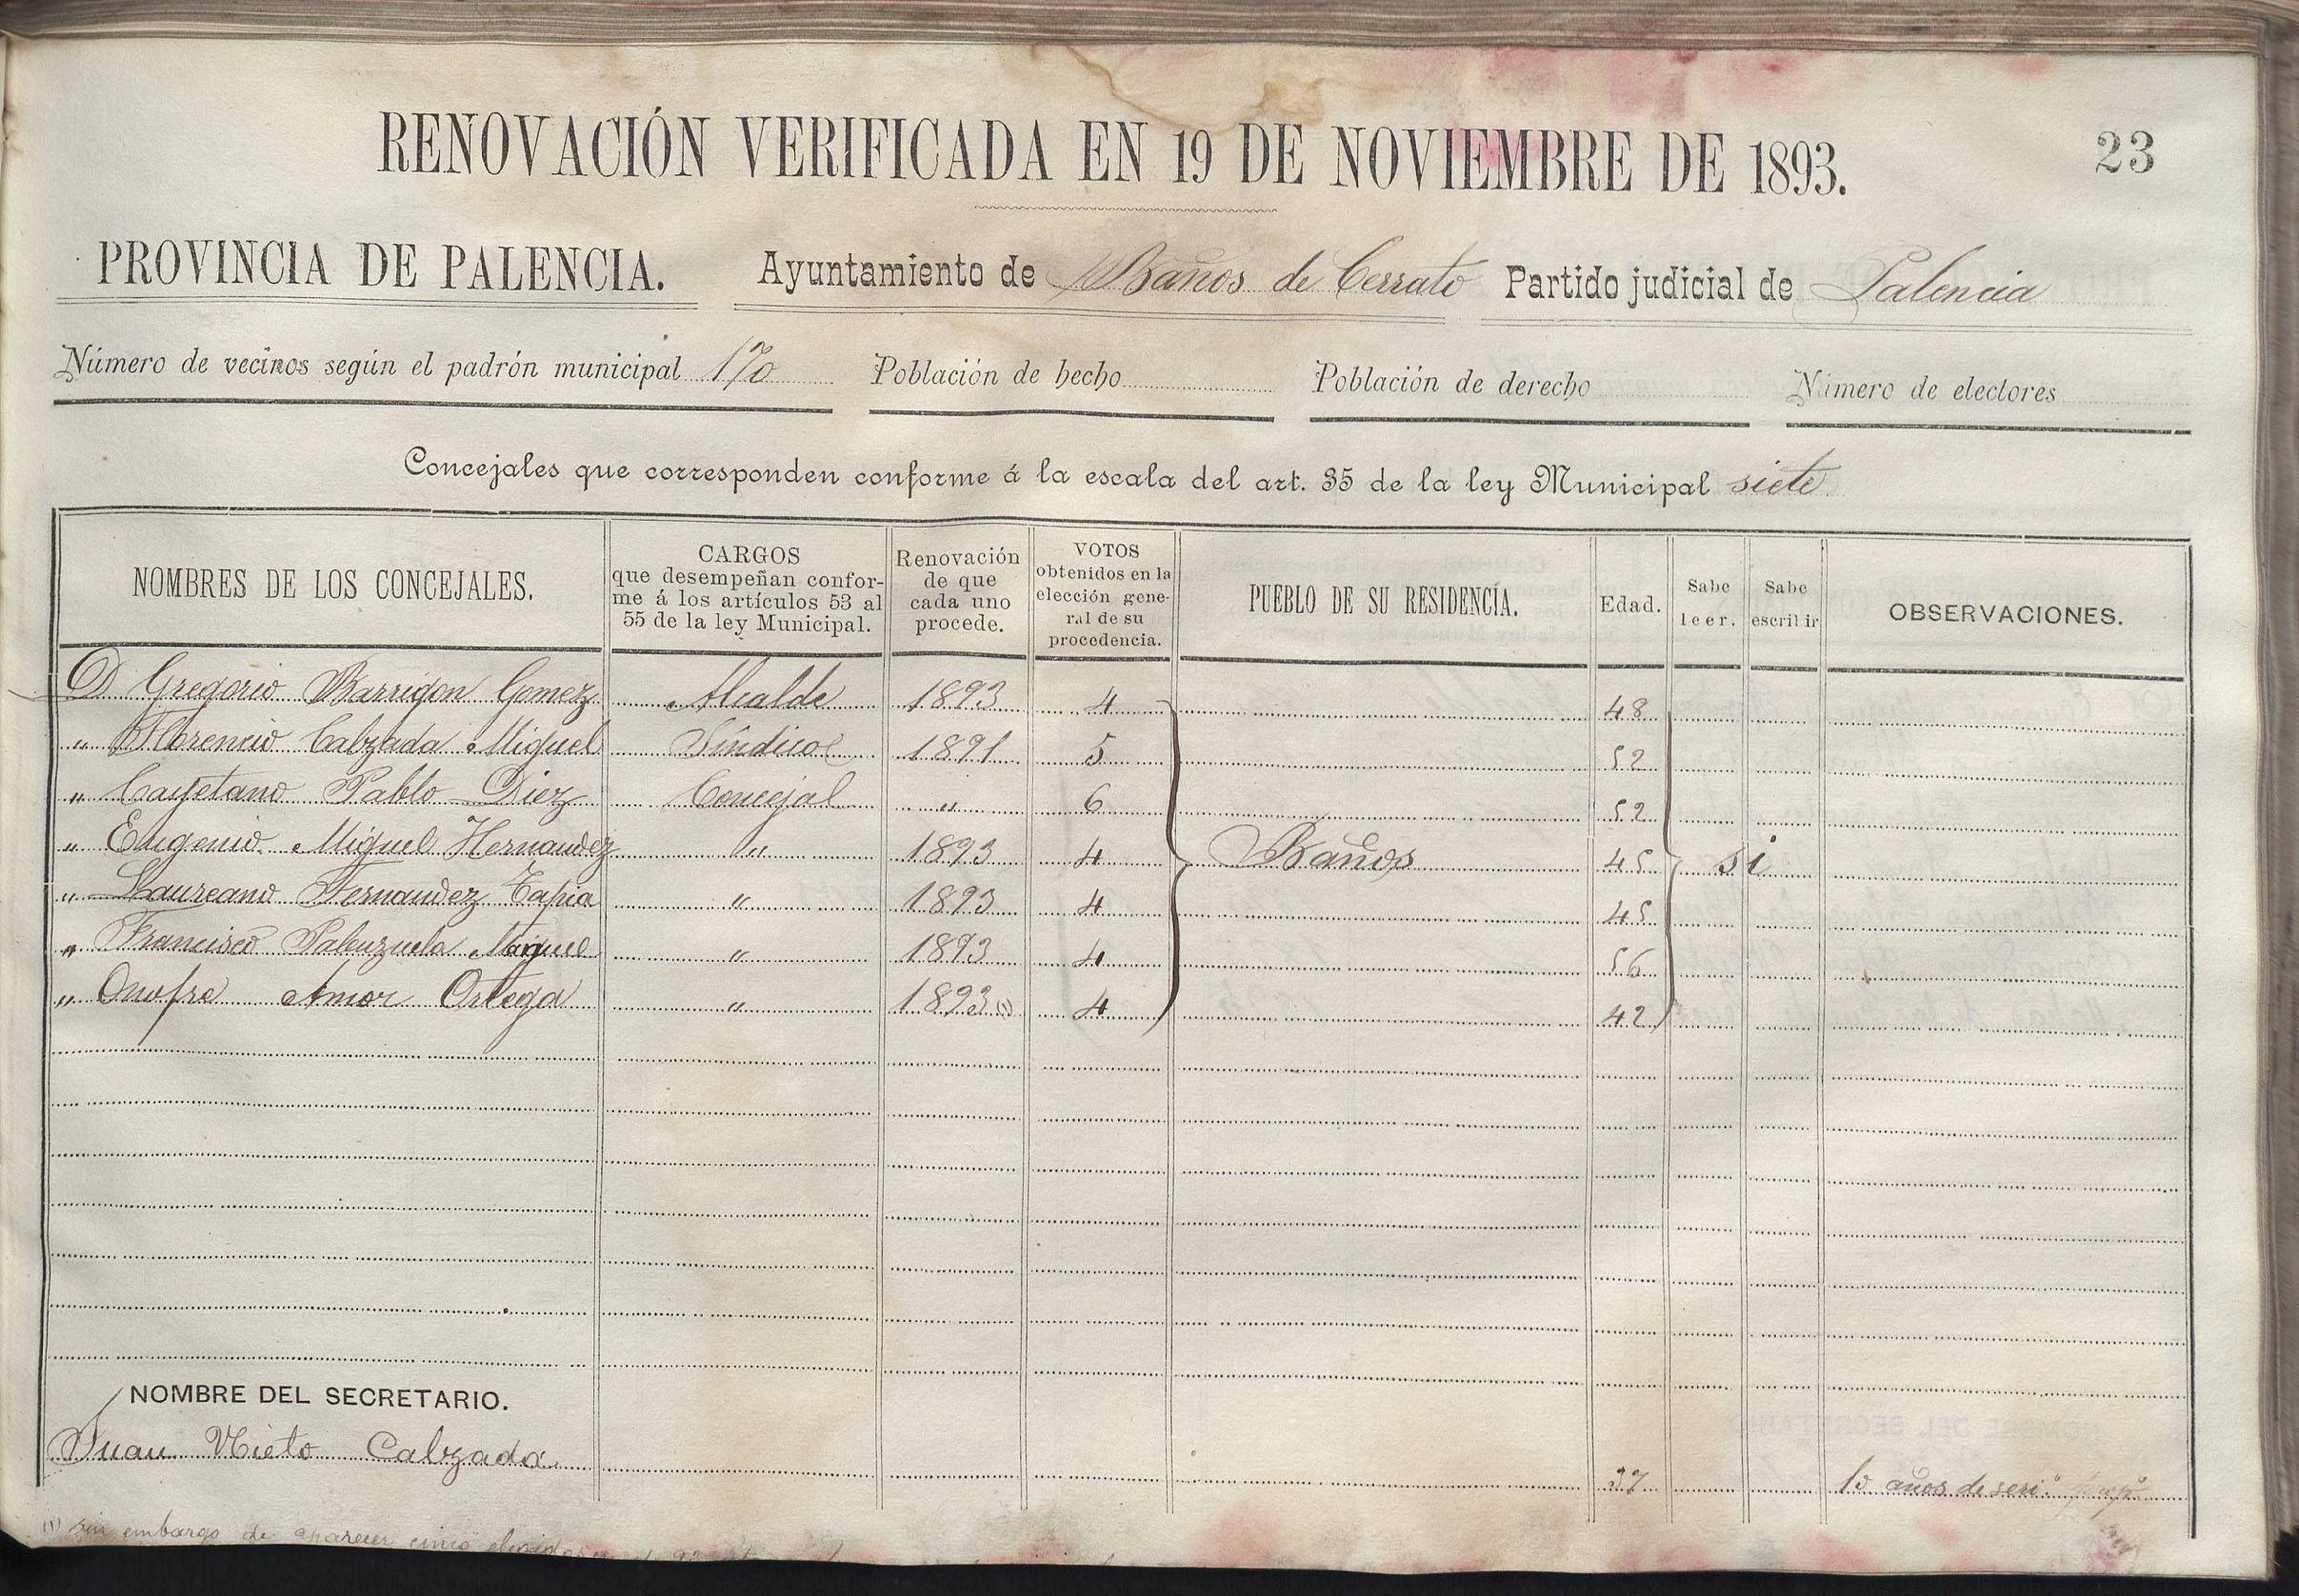 RENOVACIÓN VERIFICADA EN 19 DE NOVIEMBRE DE 1893.
23
PROVINCIA DE PALENCIA. Ayuntamiento de Baños de Cerrato Partido judicial de Palencia
Número de vecinos según el padrón municipal 170 Población de hecho Población de derecho Número de electores
Concejales que corresponden conforme á la escala del art. 35 de la ley Municipal siete
NOMBRES DE LOS CONCEJALES.
CARGOS
que desempeñan confor-
me á los artículos 53 al
55 de la ley Municipal.
Renovación
de que
cada uno
procede.
VOTOS
obtenidos en la
elección gene-
ral de su
procedencia.
PUEBLO DE SU RESIDENCIA.
Edad.
Sabe
leer.
Sabe
escribir
OBSERVACIONES.
D Gregorio Barrigon Gomez Alcalde 1893 4 48
" Florencio Calzada Miguel Síndico 1891 5 52
" Cayetano Pablo Diez Concejal " 6 52
" Eugenio Miguel Hernandez " 1893 4 Baños 45 si
" Laureano Fernandez Tapia " 1893 4 45
" Francisco Palenzuela Miguel " 1893 4 56
" Onofre Amor Ortega " 1893 (1) 4 42
NOMBRE DEL SECRETARIO.
Juan Nieto Calzada 37 10 años de
(1) sin embargo de aparecer cinco